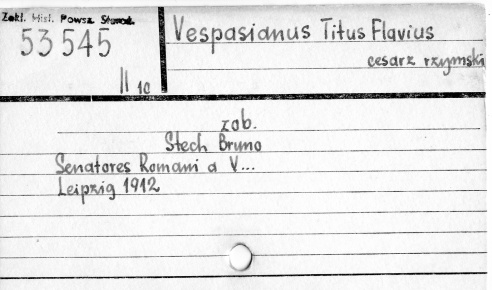 Zakł. Hist. Powsz. Starod.
53 545
II 10
Vespasianus Titus Flavius
cesarz rzymski
zob.
Stech Bruno
Senatores Romani a V...
Leipzig 1912